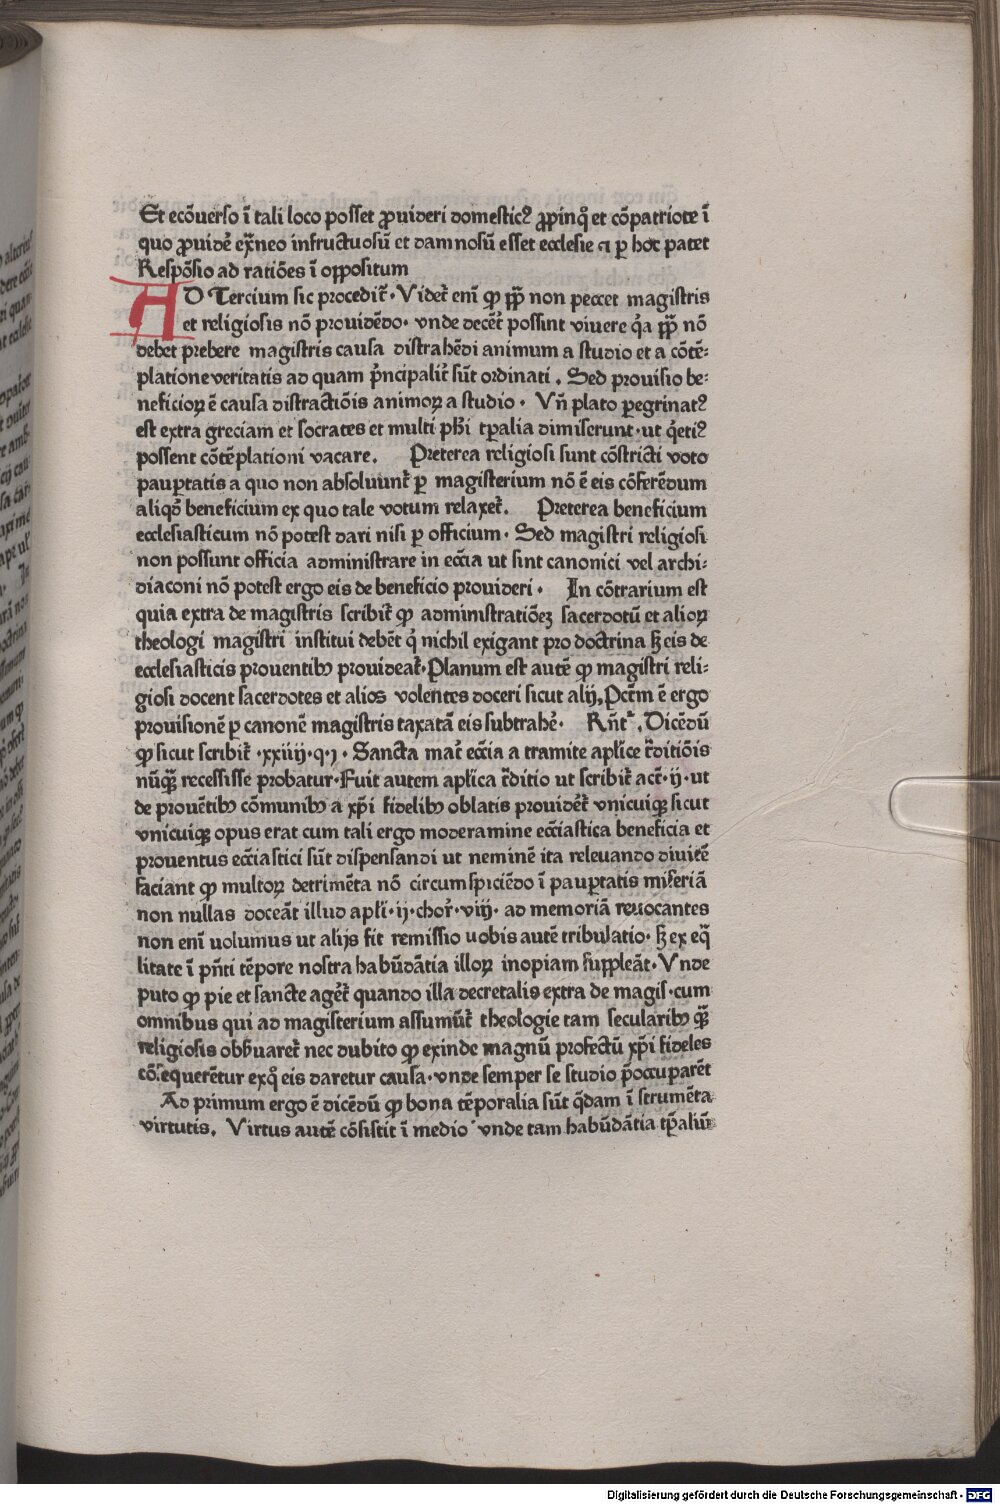 Et ecõuerso ĩ tali loco posset ꝓuideri domesticꝰ ꝓpinqͦ et cõpatriote ĩ
quo ꝓuidẽ ex̃neo infructuosũ et damnosũ esset ecclesie ⁊ p̱ hoc patet
Respõsio ad ratiões ĩ oppositum
AD Tercium sic procedit᷑· Videt᷑ eni᷑ ꝙ pp̃ non peccet magistris
et religiosis nõ prouidẽdo· vnde decẽt᷑ possint viuere qͥa pp̃ nõ
debet prebere magistris causa distrahẽdi animum a studio et a cõtẽ⸗
platione veritatis ad quam pͥncipalit᷑ sũt ordinati . Sed prouisio be⸗
neficioꝝ ẽ causa distractiõis animoꝝ a studio · Vñ plato ꝑegrinatꝰ
est extra greciam et socrates et multi phĩ tp̱alia dimiserunt·ut qͥetiꝰ
possent cõtẽplationi vacare . Preterea religiosi sunt cõstricti voto
pauꝑtatis a quo non absoluunt᷑ ꝑ magisterium nõ ẽ eis cõferẽdum
aliqð beneficium ex quo tale votum relaxet᷑. Preterea beneficium
ecclesiasticum nõ potest dari nisi ꝑ officium · Sed magistri religiosi
non possunt officia administrare in ecc̃ia ut sint canonici vel archi⸗
diaconi nõ potest ergo eis de beneficio prouideri · In cõtrarium est
quia extra de magistris scribit᷑ ꝙ administratiõeʒ sacerdotũ et alioꝝ
theologi magistri institui debẽt qͥ nichil exigant pro doctrina ẜ eis de
ecclesiasticis prouentibꝰ prouideat᷑·Planum est autẽ ꝙ magistri reli⸗
giosi docent sacerdotes et alios volentes doceri sicut alij, Pctm̃ ẽ ergo
prouisionẽ ꝑ canonẽ magistris taxatã eis subtrahe᷑· Rñt᷑ . Dicẽdũ
ꝙ sicut scribit᷑ ·xxiiij·q·j · Sancta mat᷑ ecc̃ia a tramite aplĩce t᷑ditiõis
nũqꝫ recessisse probatur·Fuit autem aplĩca t᷑ditio ut scribit᷑ act᷑·ij·ut
de prouẽtibꝰ cõmunibꝰ a xp̃i fidelibꝰ oblatis prouidẽt᷑ vnicuiqꝫ sicut
vnicuiqꝫ opus erat cum tali ergo moderamine ecc̃iastica beneficia et
prouentus ecc̃iastici sũt dispensandi ut neminẽ ita releuando diuitẽ
faciant ꝙ multoꝝ detrimẽta nõ circumspiciẽdo ĩ pauꝑtatis miseriã
non nullas doceãt illud aplĩ·ij·chor᷑·viij· ad memoriã reuocantes
non enĩ uolumus ut alijs sit remissio uobis autẽ tribulatio· ẜ ex eq̃
litate ĩ pñti tẽpore nostra habũdãtia illoꝝ inopiam suppleãt·Vnde
puto ꝙ pie et sancte aget᷑ quando illa decretalis extra de magis·cum
omnibus qui ad magisterium assumũt᷑ theologie tam secularibꝰ qꝫ
religiosis obẜuaret᷑ nec dubito ꝙ exinde magnũ profectũ xp̃i fideles
cõsequerẽtur exqͦ eis daretur causa·vnde semper se studio p̃occuparẽt
Ad primum ergo ẽ dicẽdũ ꝙ bona tẽporalia sũt q̃dam ĩstrumẽta
virtutis. Virtus autẽ cõsistit ĩ medio vnde tam habũdãtia tp̱aliũ
Digitalisierung gefördert durch die Deutsche Forschungsgemeinschaft - DFG